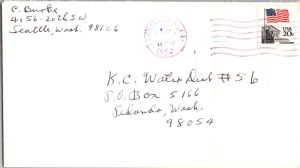 C. Burke
4156-20th SW
Seattle, Wash. 98106
1982
USA
20c
K.C. Water Dist #56
P.O. Box 5166
Redondo, Wash.
98054